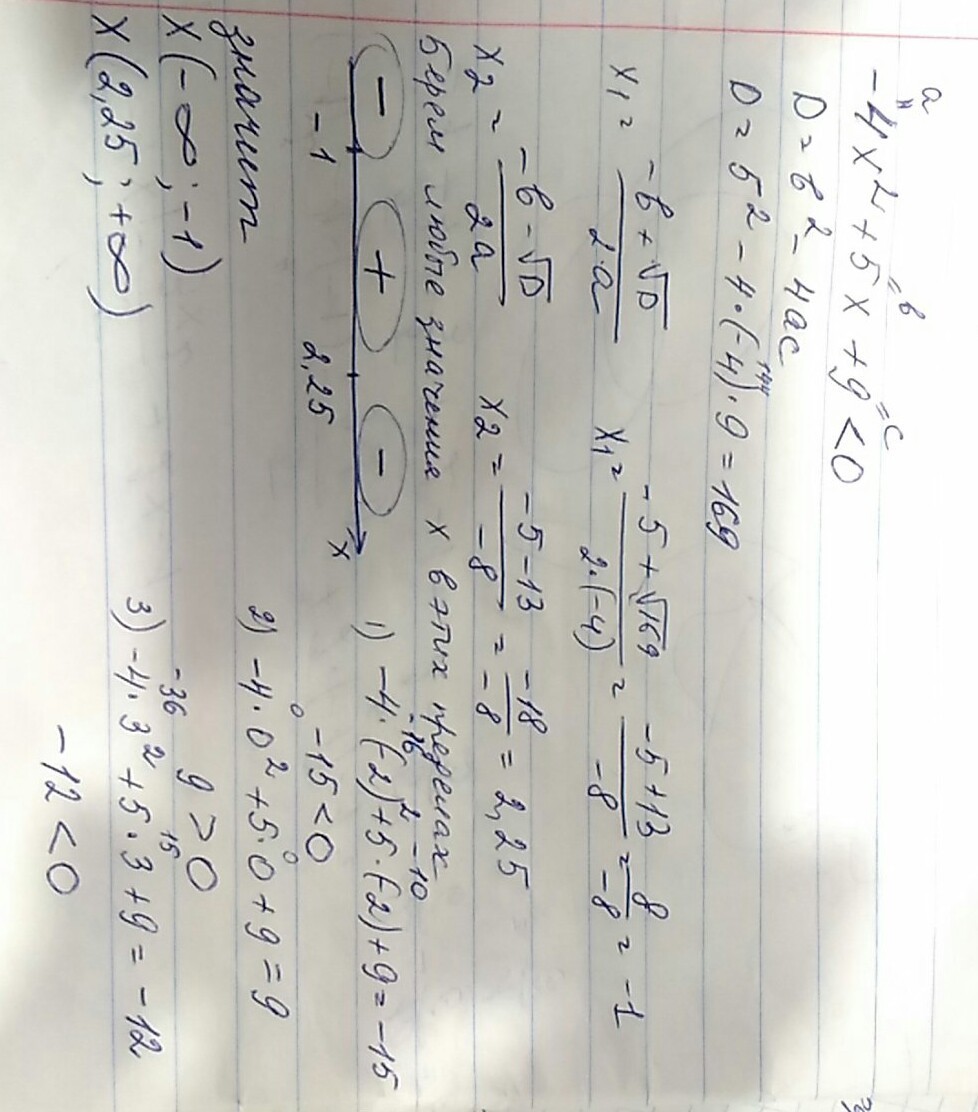 a =b =c
-4x² + 5x + 9 < 0
D = b² - 4ac
+144
D = 5² - 4·(-4)·9 = 169
x₁ = (-b + √D)/(2·a) x₁ = (-5 + √169)/(2·(-4)) = (-5+13)/(-8) = 8/(-8) = -1
x₂ = (-b - √D)/(2a) x₂ = (-5-13)/(-8) = (-18)/(-8) = 2,25
Берем любые значения x в этих пределах
- + - x
-1 2,25
-16 -10
1) -4·(-2)²+5·(-2)+9 = -15
-15 < 0
0 0
2) -4·0²+5·0+9 = 9
9 > 0
-36 15
3) -4·3²+5·3+9 = -12
-12 < 0
значит
x(-∞; -1)
x(2,25; +∞)